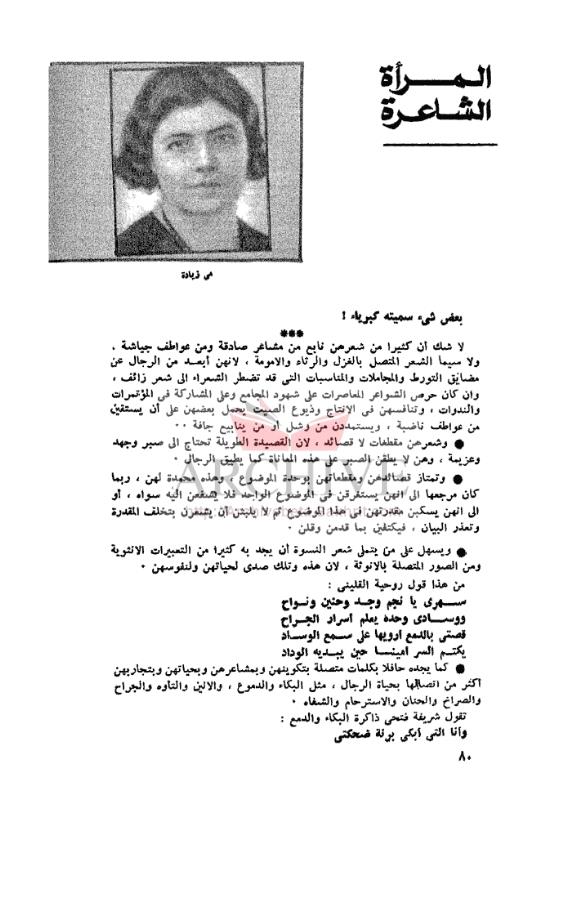 المـــرأة
الشاعرة
مى زيادة
بعض شىء سميته كبرياء !
***
لا شك أن كثيرا من شعرهن نابع من مشاعر صادقة ومن عواطف جياشة .
ولا سيما الشعر المتصل بالغزل والرثاء والامومة ، لانهن أبعد من الرجال عن
مضايق التورط والمجاملات والمناسبات التى قد تضطر الشعراء الى شعر زائف ،
وان كان حرص الشواعر المعاصرات على شهود المجامع وعلى المشاركة فى المؤتمرات
والندوات ، وتنافسهن فى الانتاج وذيوع الصيت يحمل بعضهن على أن يستقين
من عواطف ناضبة ، ويستمددن من وشل أو من ينابيع جافة ٠٠
● وشعرهن مقطعات لا قصائد ، لان القصيدة الطويلة تحتاج الى صبر وجهد
وعزيمة ، وهن لا يطقن الصبر على هذه المعاناة كما يطيق الرجال ٠
● وتمتاز قصائدهن ومقطعاتهن بوحدة الموضوع ، وهذه محمدة لهن ، ربما
كان مرجعها الى انهن يستغرقن فى الموضوع الواحد فلا يضفن اليه سواه ، أو
الى انهن يسكبن مقدرتهن فى هذا الموضوع ثم لا يلبثن أن يشعرن بتخلف المقدرة
وتعذر البيان ، فيكتفين بما قدمن وقلن ٠
● ويسهل على من يتملى شعر النسوة أن يجد به كثيرا من التعبيرات الانثوية
ومن الصور المتصلة بالانوثة ، لان هذه وتلك صدى لحياتهن ولنفوسهن ٠
من هذا قول روحية القلينى :
ســهرى يا نجم وجـد وحنين ونـواح
ووسـادى وحده يعلم اسرار الجـراح
قصتى بالدمع ارويها على سمع الوساد
يكتـم السر امينـسا حين يبـديه الوداد
● كما يجده حافلا بكلمات متصلة بتكوينهن وبمشاعرهن وبحياتهن وبتجاربهن
أكثر من اتصالها بحياة الرجال ، مثل البكاء والدموع ، والانين والتاوه والجراح
والصراخ والحنان والاسترحام والشفاء ٠
تقول شريفة فتحى ذاكرة البكاء والدمع :
وأنا التى أبكى برنة ضحكتى
٨٠
ARCHIVE